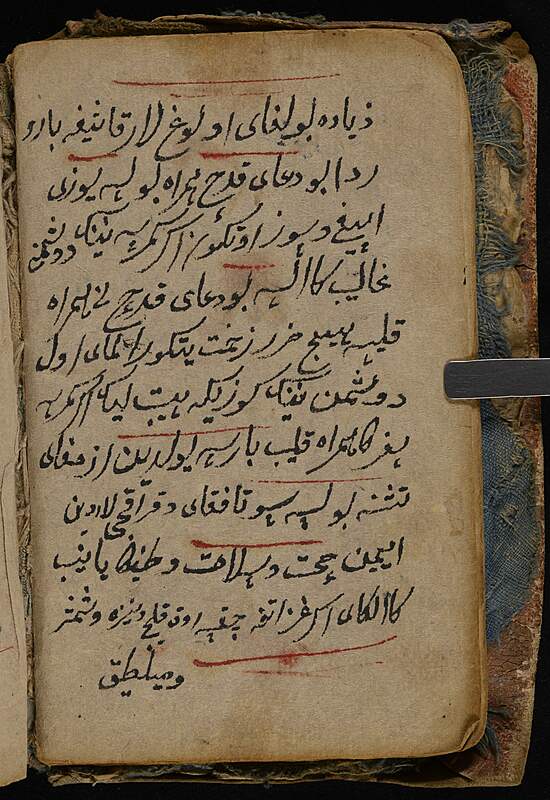 زیاده بولغای اولوغ لار قاشیغه بارو
ردا بو دعای قدح همراه بولسه یوزی
ایسیغ و سوز اوتکور اگر کمرسه نینک دوشمن
غالب کالسه بو دعای قدح نی همراه
قیلسه هیچ ضرر زحمت یتکورا المای اول
دوشمن نینک کوزیکه هیبت لیک اگر کمرسه
سفر کا همراه قیلیب بارسه یولدین ازمغای
تشنه بولسه سو تافقای و قراقچی لاردین
ایمن صحت و سلامت وطنیکا یانیب
کالکای اگر غزاتغه چقسه اوق قلچ و نیزه و شمشر
و میلطیق